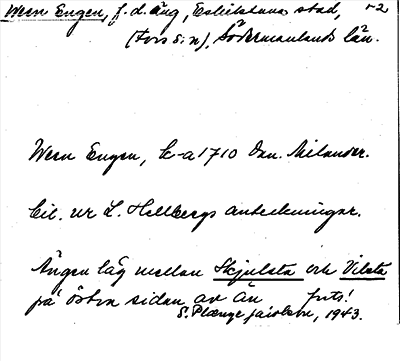 Wern Engen, f.d. äng, Eskilstuna stad, -2
(Fors s:n), Södermanlands län.
Wern Engen, k-a 1710 Dan. Milander.
Cit. ur L. Hellbergs anteckningar.
Ängen låg mellan Skjulsta och Vilsta
på östra sidan av ån forts!
S. Plænge Jacobson, 1943.